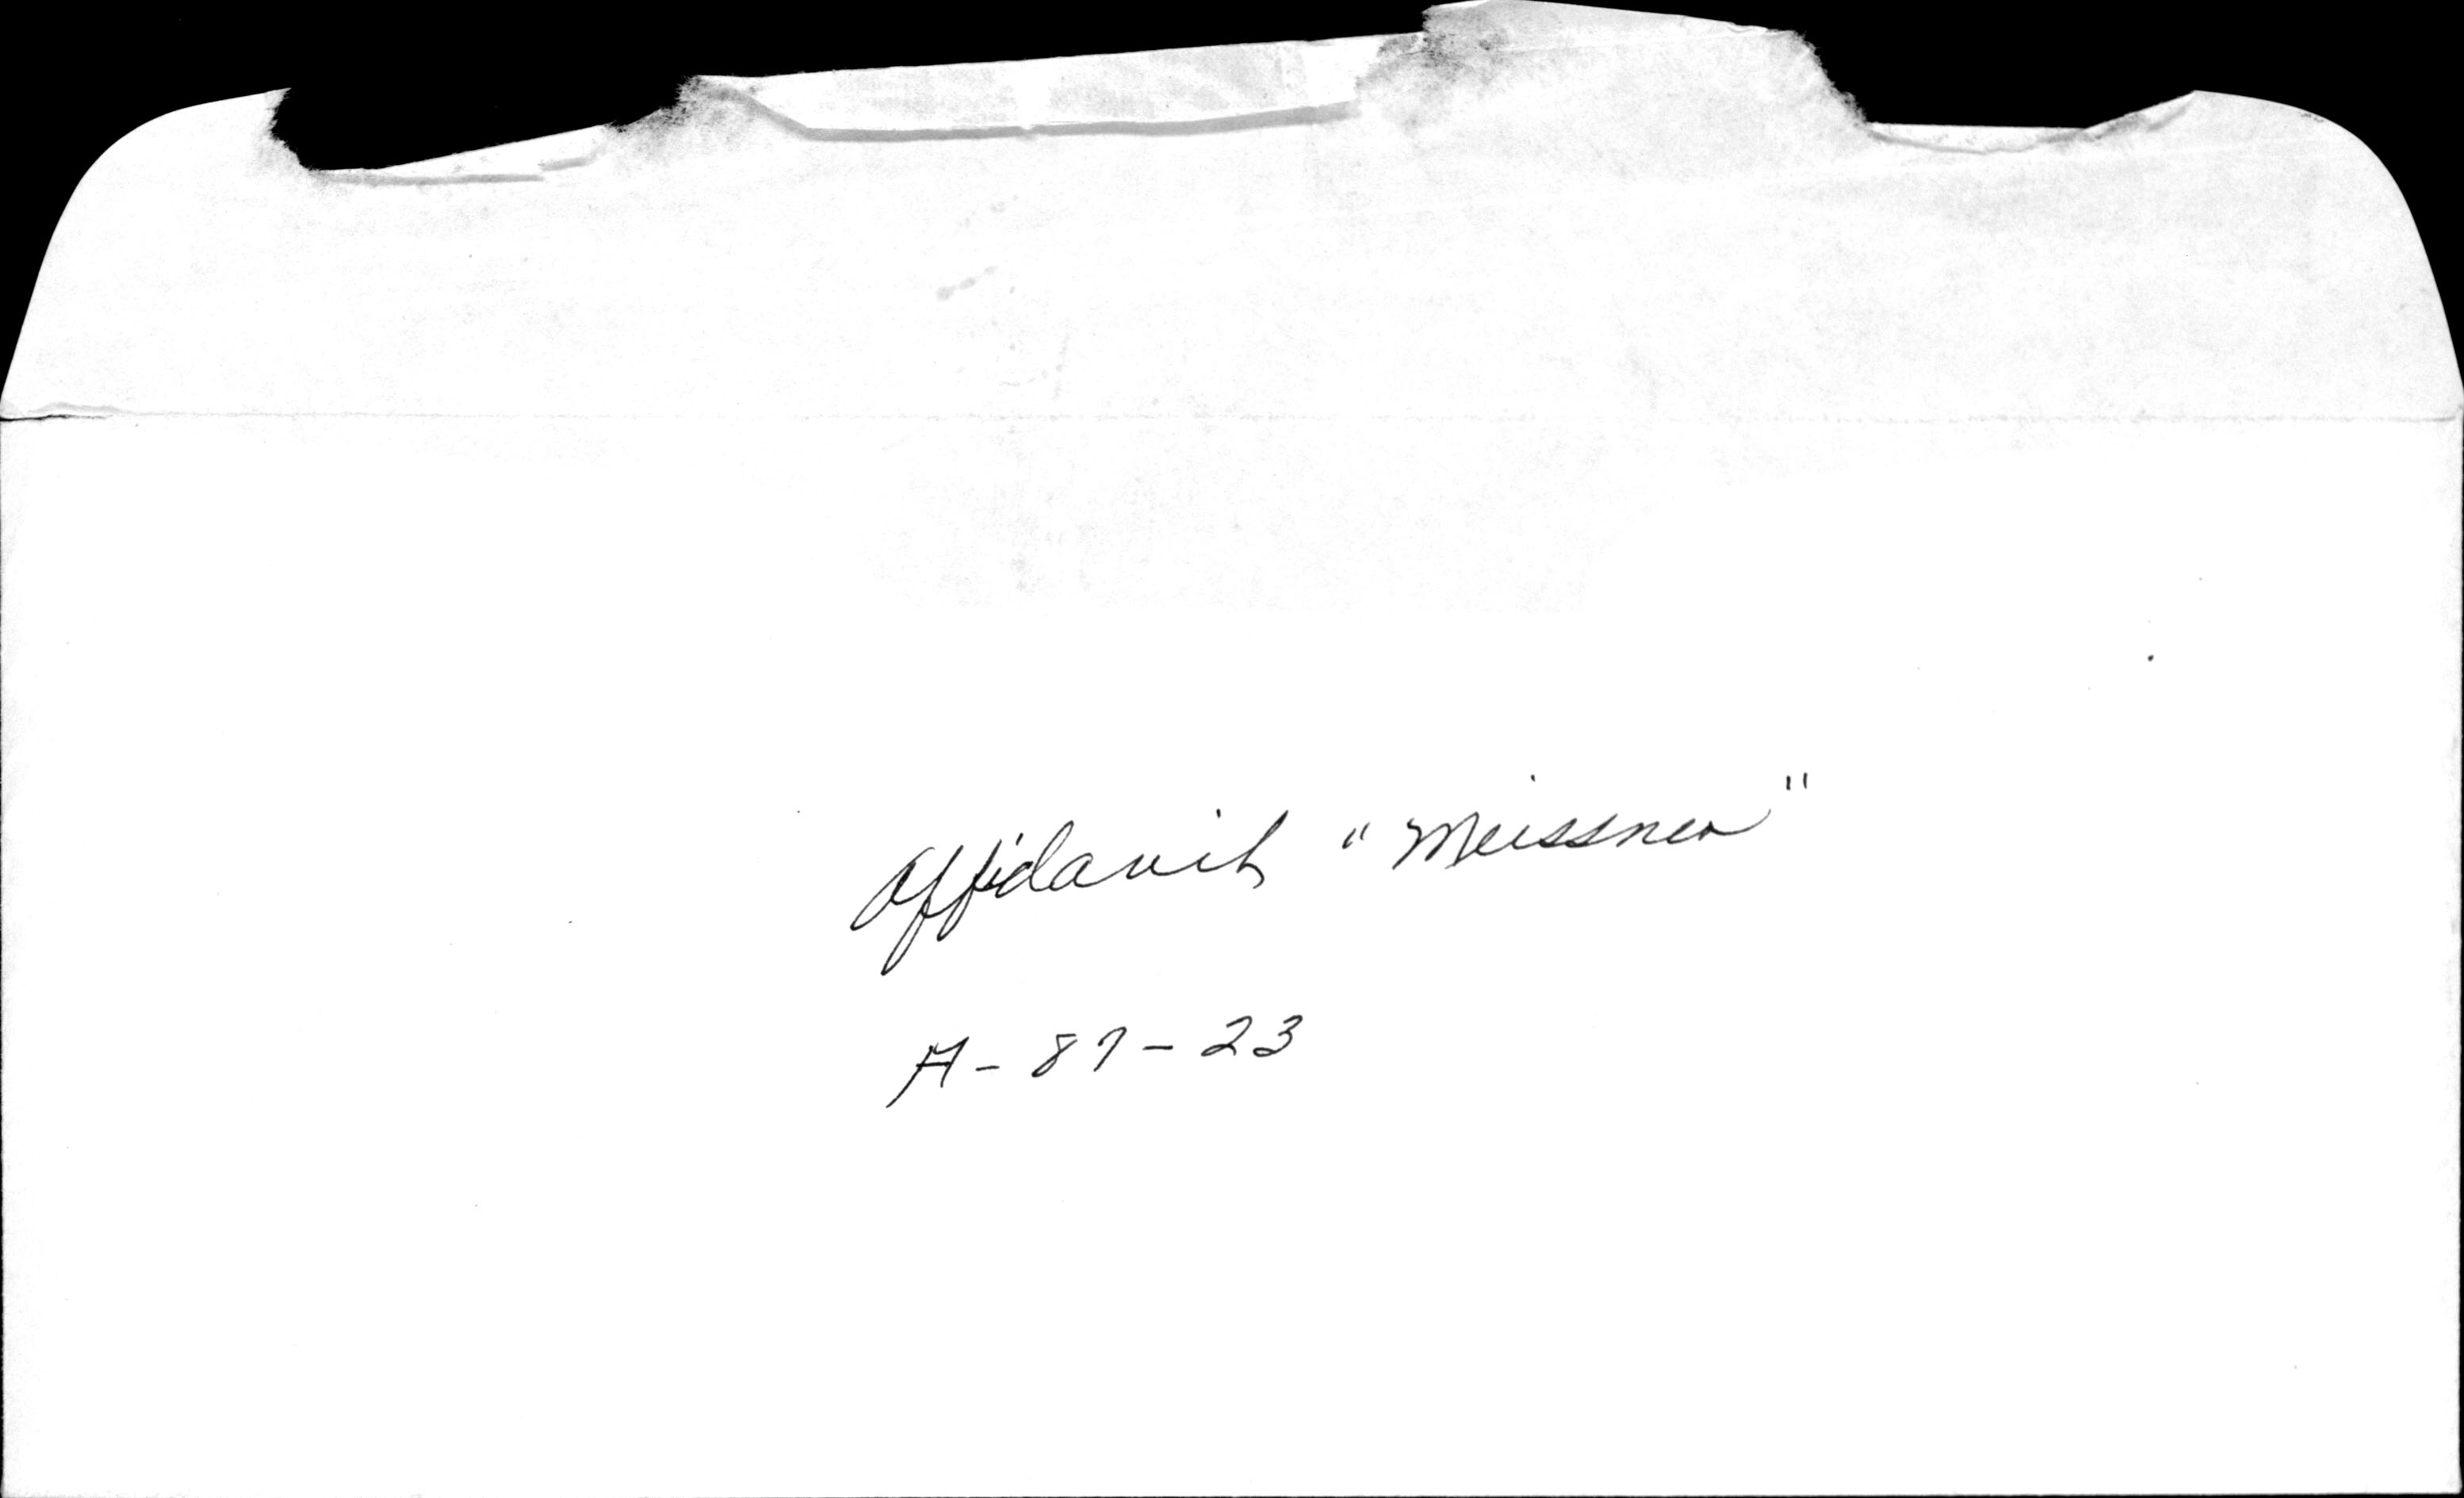 Affidavit "Meissner"
A-87-23